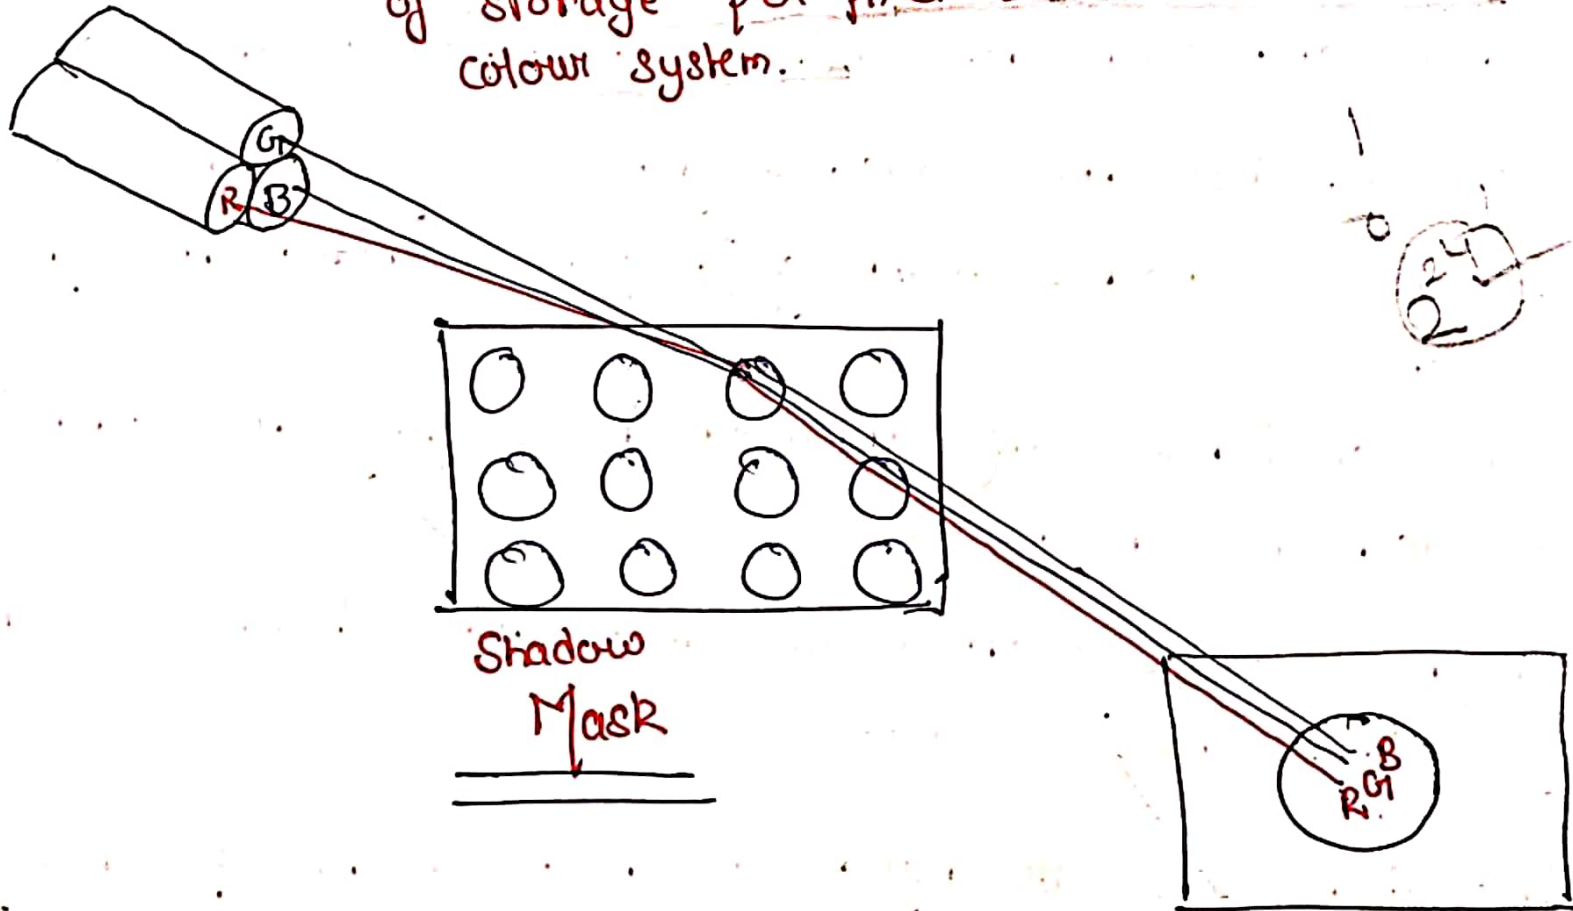 of storage per
colour system.
G
R B
24
2
Shadow
Mask
B
G
R